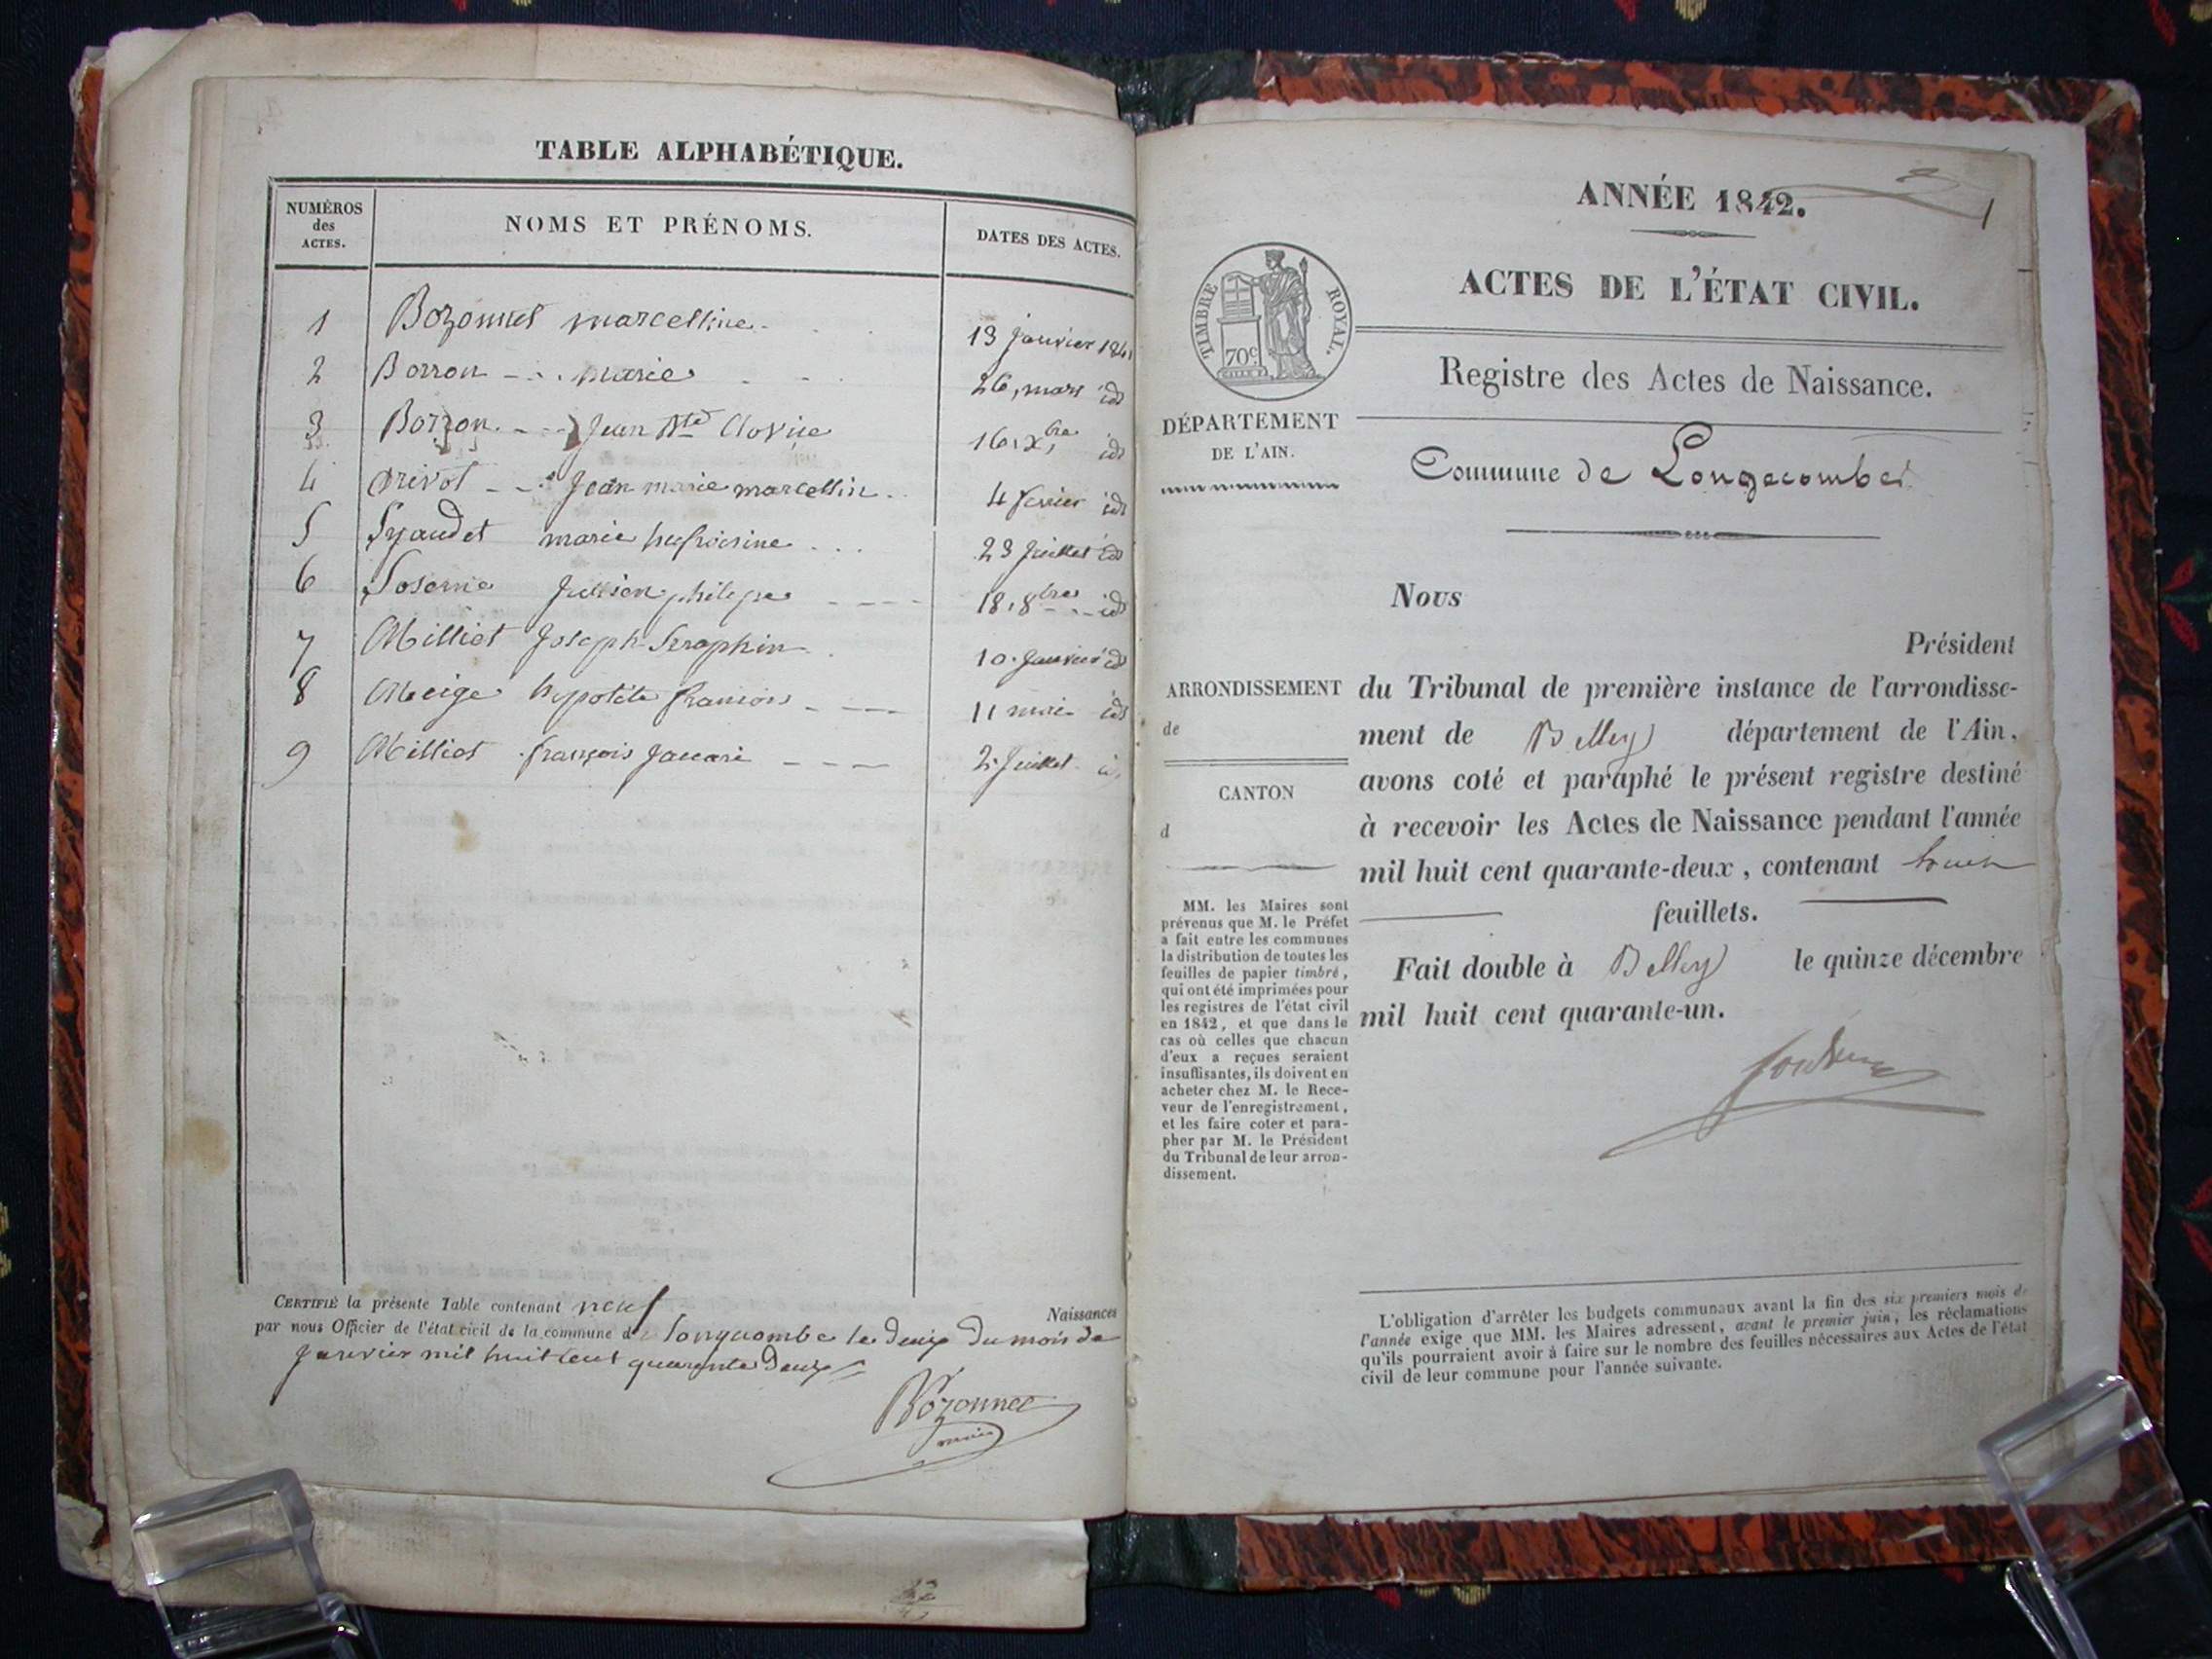 TABLE ALPHABÉTIQUE.
NUMÉROS des ACTES.
NOMS ET PRÉNOMS.
DATES DES ACTES.
1 Bozonnet marcelline 13 janvier 184
2 Borron marie 26, mars id
3 Borron Jean Bte Clovise 16, Xbre id
4 Drivot Jean marie marcellin 4 fevrier id
5 marie 23 Juillet id
6 Jullien philipe 18, 8bre id
7 Milliet Joseph Seraphin 10. Janvier id
8 Meige hypolite francois 11 mai id
9 Milliet françois 2 Juillet
CERTIFIÉ la présente Table contenant neuf Naissances
par nous Officier de l'état civil de la commune de Longecombe le deux du mois de
janvier mil huit cent quarante deux
Bozonnet
maire
ANNÉE 1842.
1
ACTES DE L'ÉTAT CIVIL.
TIMBRE ROYAL.
70c
Registre des Actes de Naissance.
DÉPARTEMENT
DE L'AIN.
Commune de Longecombe
Nous
Président
ARRONDISSEMENT
de
du Tribunal de première instance de l'arrondisse-
ment de Belley département de l'Ain,
avons coté et paraphé le présent registre destiné
à recevoir les Actes de Naissance pendant l'année
mil huit cent quarante-deux, contenant
feuillets.
Fait double à Belley le quinze décembre
mil huit cent quarante-un.
CANTON
d
MM. les Maires sont
prévenus que M. le Préfet
a fait entre les communes
la distribution de toutes les
feuilles de papier timbré,
qui ont été imprimées pour
les registres de l'état civil
en 1842, et que dans le
cas où celles que chacun
d'eux a reçues seraient
insuffisantes, ils doivent en
acheter chez M. le Rece-
veur de l'enregistrement,
et les faire coter et para-
pher par M. le Président
du Tribunal de leur arron-
dissement.
L'obligation d'arrêter les budgets communaux avant la fin des six premiers mois de
l'année exige que MM. les Maires adressent, avant le premier juin, les réclamations
qu'ils pourraient avoir à faire sur le nombre des feuilles nécessaires aux Actes de l'état
civil de leur commune pour l'année suivante.